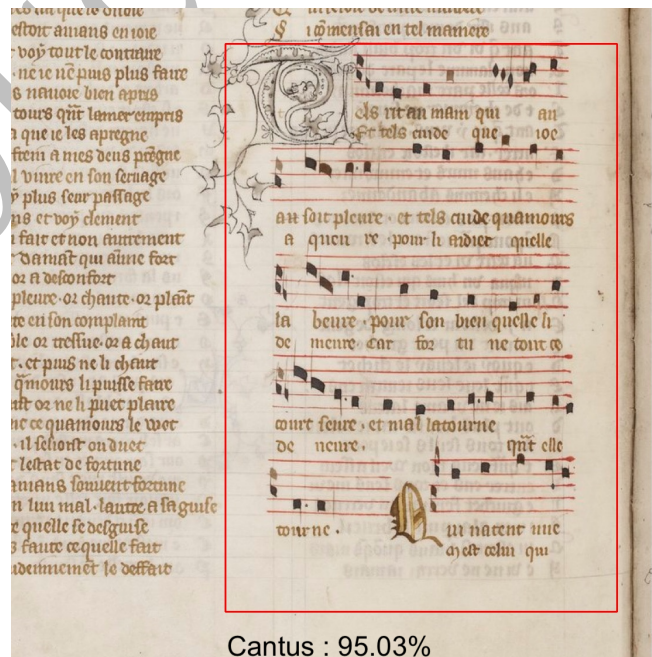 estoit amans en ioie
voy tout le contraire
ne ie nẽ puis plus faire
s nauoie bien apris
tours qñt lamer empris
a que ie les apregne
a mes deus pregne
l viure en son seruage
y plus seur passage
ns et voy clement
i fait et non autrement
qui aime fort
or a desconfort
pleure · or chante · or plaīt
te en son complaint
ble or tressue · or a chaut
t · et puis ne li chaut
q̃mours li puisse faire
or ne li puet plaire
ce quamours le voet
· il
lestat de fortune
amans souuent fortune
n lun mal · lautre a sa guise
e quelle se desguise
s faute ce quelle fait
le deffait
i cõmensai en tel maniere
Cels rit au main qui au
Et tels cuide que ioe
au soir pleure · et tels cuide quamours
a quen re · pour li aidier quelle
la beure · pour son bien quelle li
de meure car for tu ne tout ce
court seure · et mal latourne
de neure · qñt elle
tourne · Qui natent nue
mest celui qui
Cantus : 95.03%